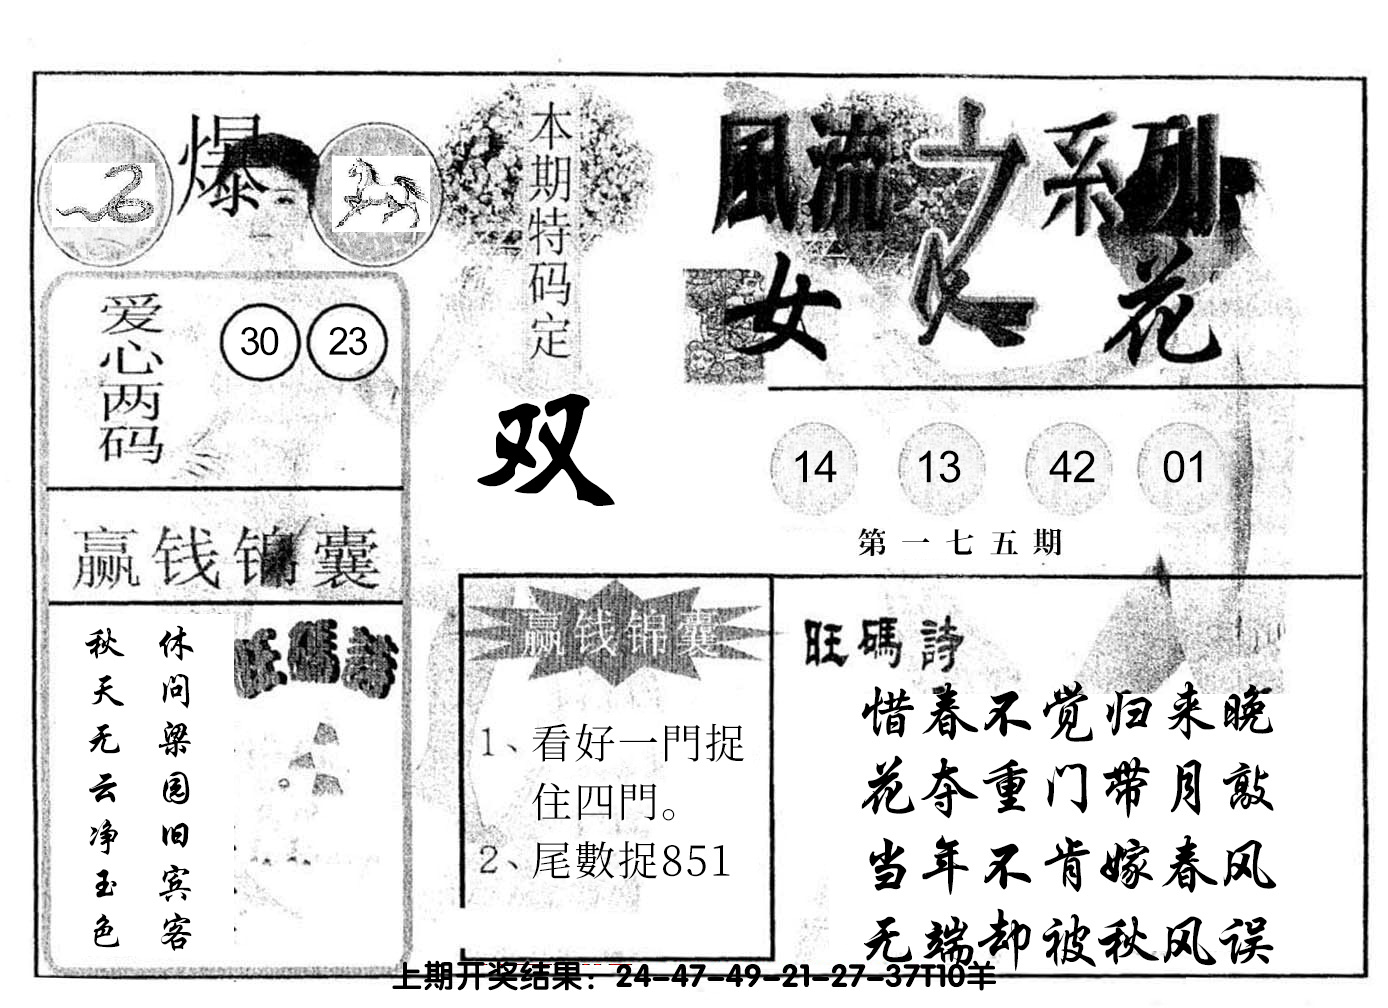 爆
本期特码定
双
風流之系列
女人花
爱心两码
30 23
14 13 42 01
第一七五期
赢钱锦囊
休问梁园旧宾客
秋天无云净玉色
旺碼詩
赢钱锦囊
1、看好一門捉
住四門。
2、尾數捉851
旺碼詩
惜春不觉归来晚
花夺重门带月敲
当年不肯嫁春风
无端却被秋风误
上期开奖结果：24-47-49-21-27-37T10羊